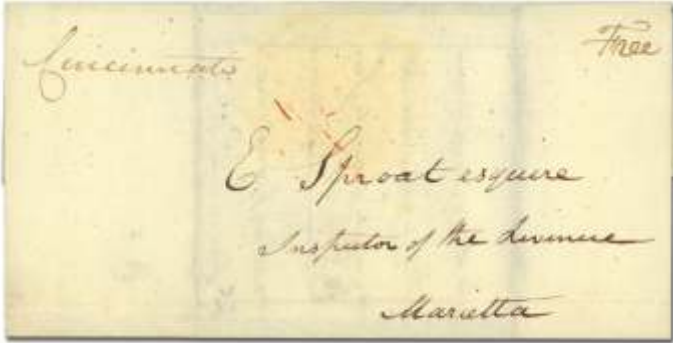 Cincinnati
Free
E Sproat esquire
Inspector of the Revenue
Marietta